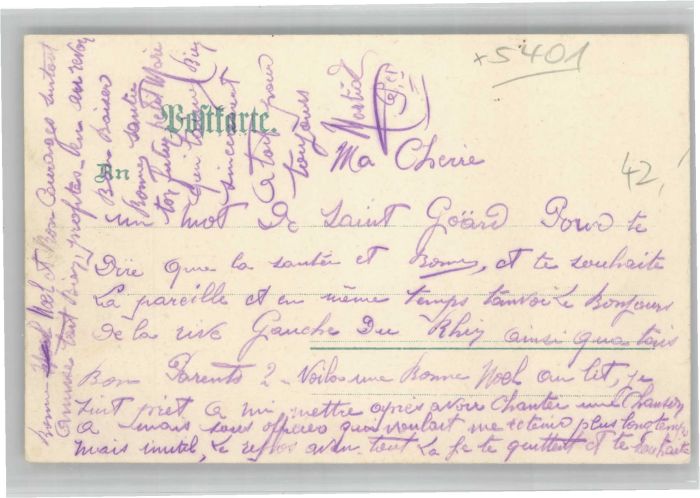 +5401
Postkarte.
An
42,
Ma Cherie
un mot de Saint Goard Pour te
Dire que la santée et Bonne, et te souhaite
La pareille et en même temps tanvoi Le Bonjours
de la rive Gauche Du Rhin ainsi qua tais
Bon Parents 2 - Voila une Bonne Noel au lit, je
suit prèt a mi mettre après avoir chanter une Chanson
a mais sous officiers qui voulait me retenir plus longtemps
mais inutil, Le repos avan tout La je te quitterst et te souhaite
Bonne Noel et Bon Courages surtout
amuse tant bien, profites-en en revoir
Bon Baiser
Bonne santée
ton petit Mari
qui taime Bien
sincerement
a toi pour
toujours